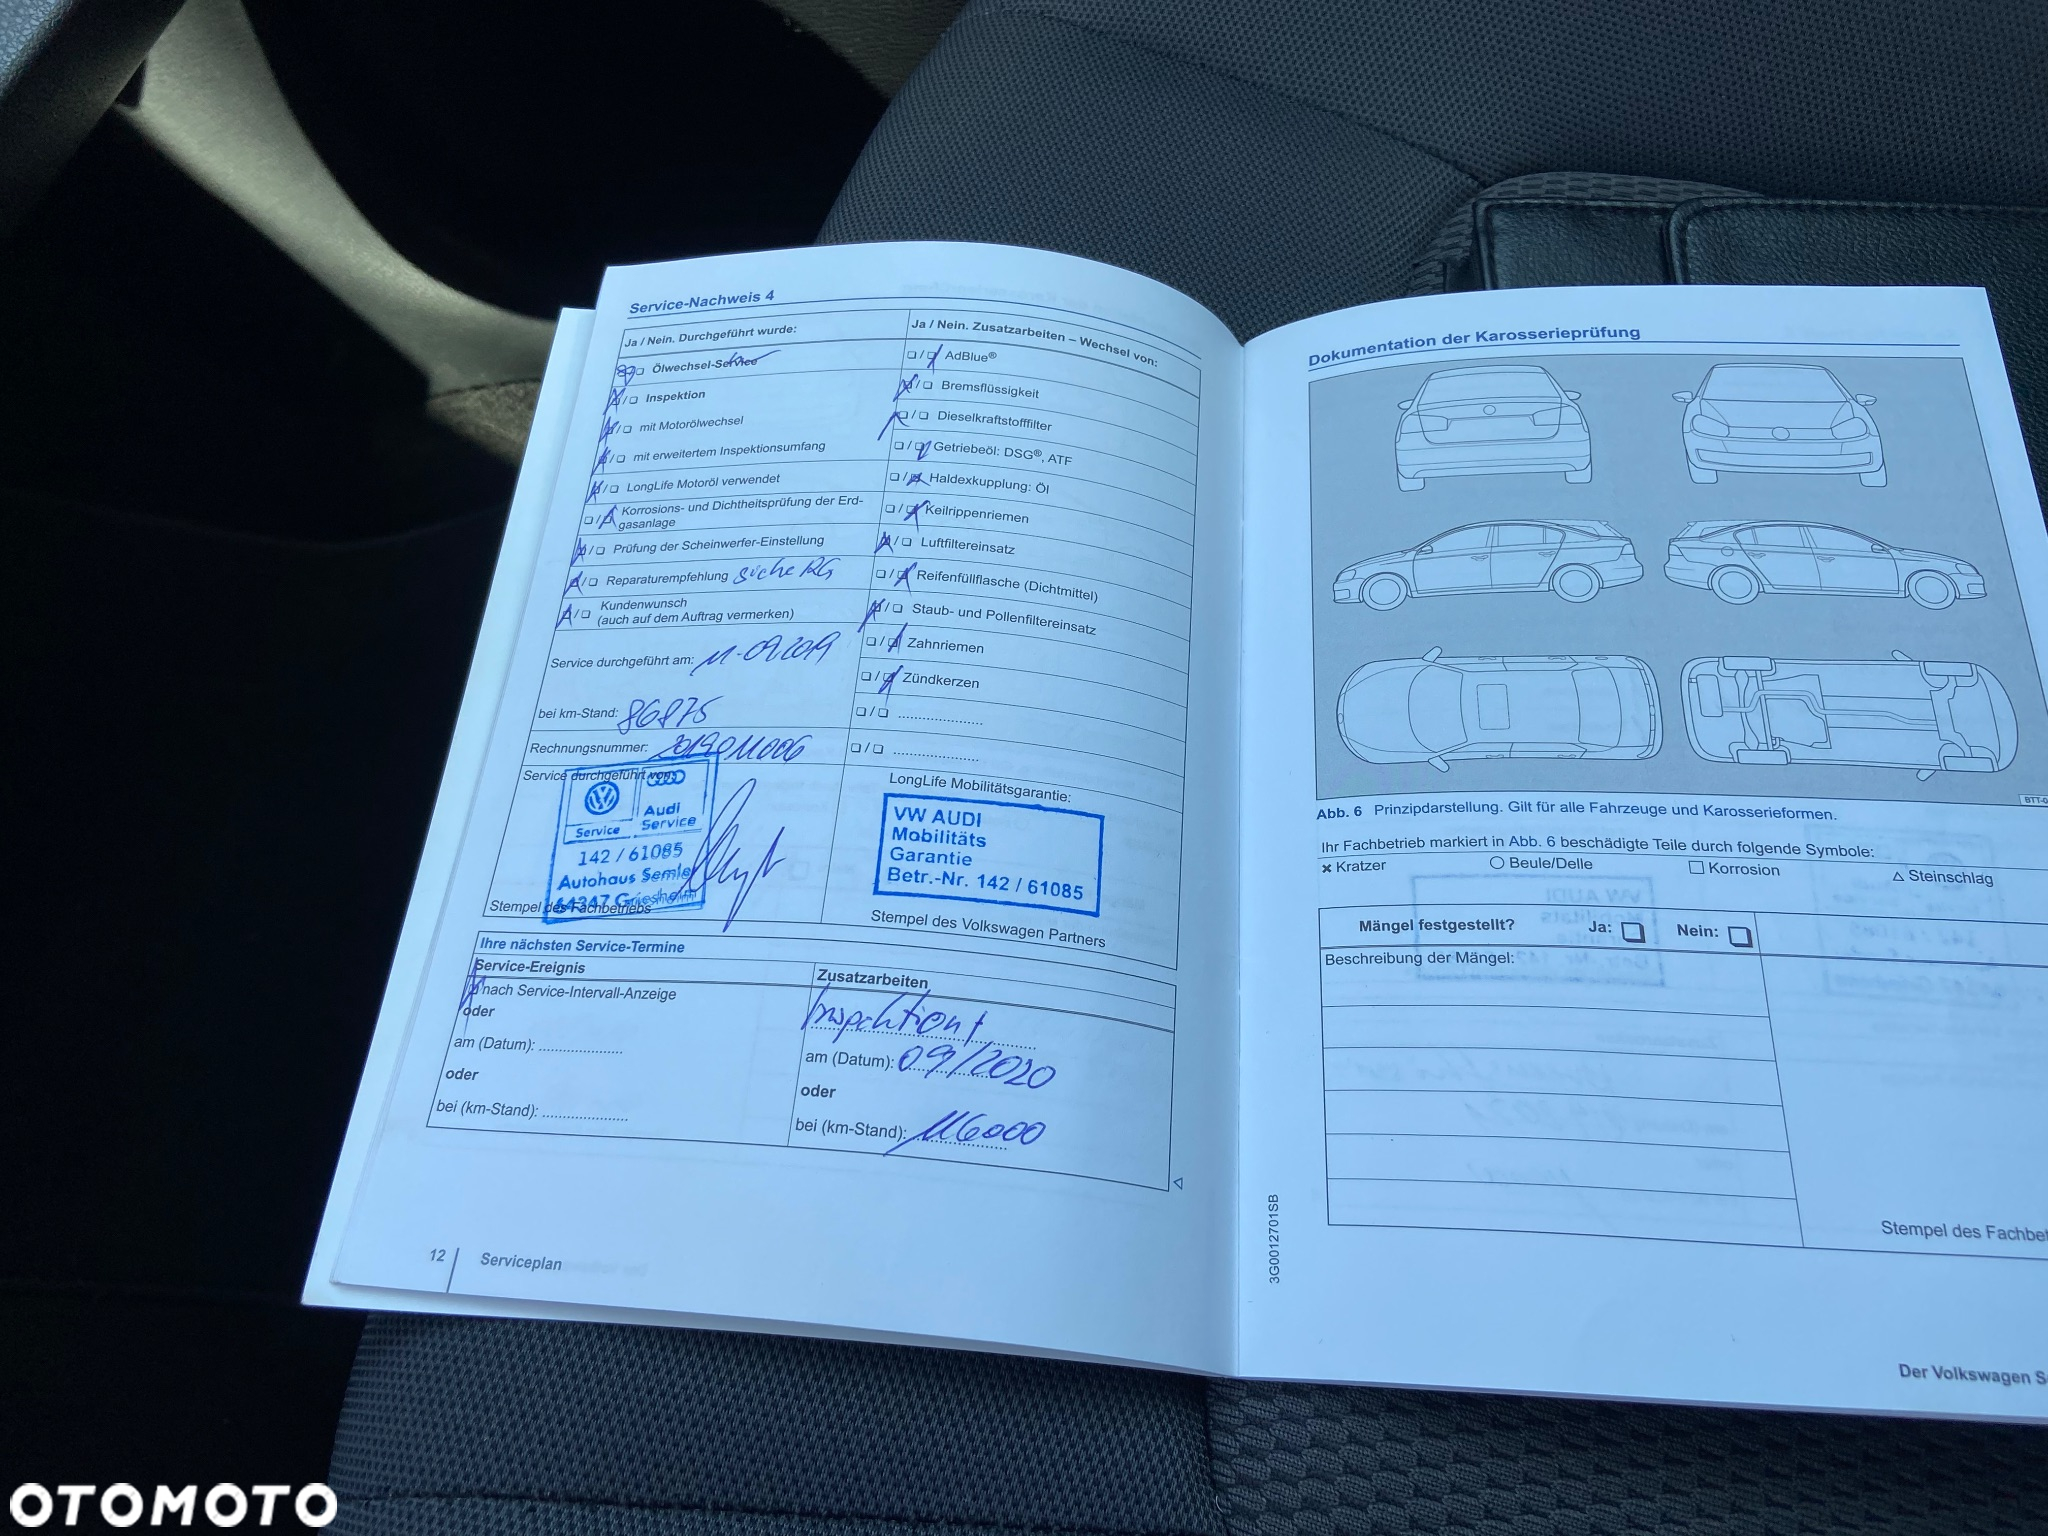 Service-Nachweis 4
Ja / Nein. Durchgeführt wurde:
Ölwechsel-Service
Inspektion
mit Motorölwechsel
mit erweitertem Inspektionsumfang
LongLife Motoröl verwendet
Korrosions- und Dichtheitsprüfung der Erd-
gasanlage
Prüfung der Scheinwerfer-Einstellung
Reparaturempfehlung siehe RG
Kundenwunsch
(auch auf dem Auftrag vermerken)
Service durchgeführt am: 11.09.2019
bei km-Stand: 86875
Rechnungsnummer:
Service durchgeführt von:
Audi
Service Service
142 / 61085
Autohaus Semler
64347 Griesheim
Stempel des Fachbetriebs
Ja / Nein. Zusatzarbeiten – Wechsel von:
AdBlue®
Bremsflüssigkeit
Dieselkraftstofffilter
Getriebeöl: DSG®, ATF
Haldexkupplung: Öl
Keilrippenriemen
Luftfiltereinsatz
Reifenfüllflasche (Dichtmittel)
Staub- und Pollenfiltereinsatz
Zahnriemen
Zündkerzen
LongLife Mobilitätsgarantie:
VW AUDI
Mobilitäts
Garantie
Betr.-Nr. 142 / 61085
Stempel des Volkswagen Partners
Ihre nächsten Service-Termine
Service-Ereignis
nach Service-Intervall-Anzeige
oder
am (Datum):
oder
bei (km-Stand):
Zusatzarbeiten
Inspektion
am (Datum): 09/2020
oder
bei (km-Stand): 116000
12 Serviceplan
Dokumentation der Karosserieprüfung
Abb. 6 Prinzipdarstellung. Gilt für alle Fahrzeuge und Karosserieformen.
Ihr Fachbetrieb markiert in Abb. 6 beschädigte Teile durch folgende Symbole:
Kratzer Beule/Delle Korrosion Steinschlag
Mängel festgestellt? Ja: Nein:
Beschreibung der Mängel:
Stempel des
3G0012701SB
Der Volkswagen
OTOMOTO